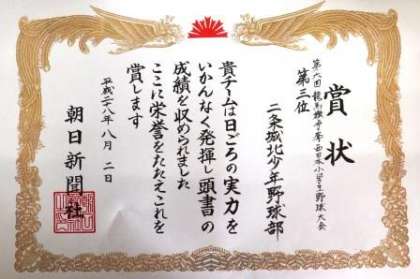 賞状
第六回龍馬旗争奪西日本小学生野球大会
第三位
二条城北少年野球部
貴チームは日ごろの実力を
いかんなく発揮し頭書の
成績を収められました
ここに栄誉をたたえこれを
賞します
平成二八年八月二日
朝日新聞社